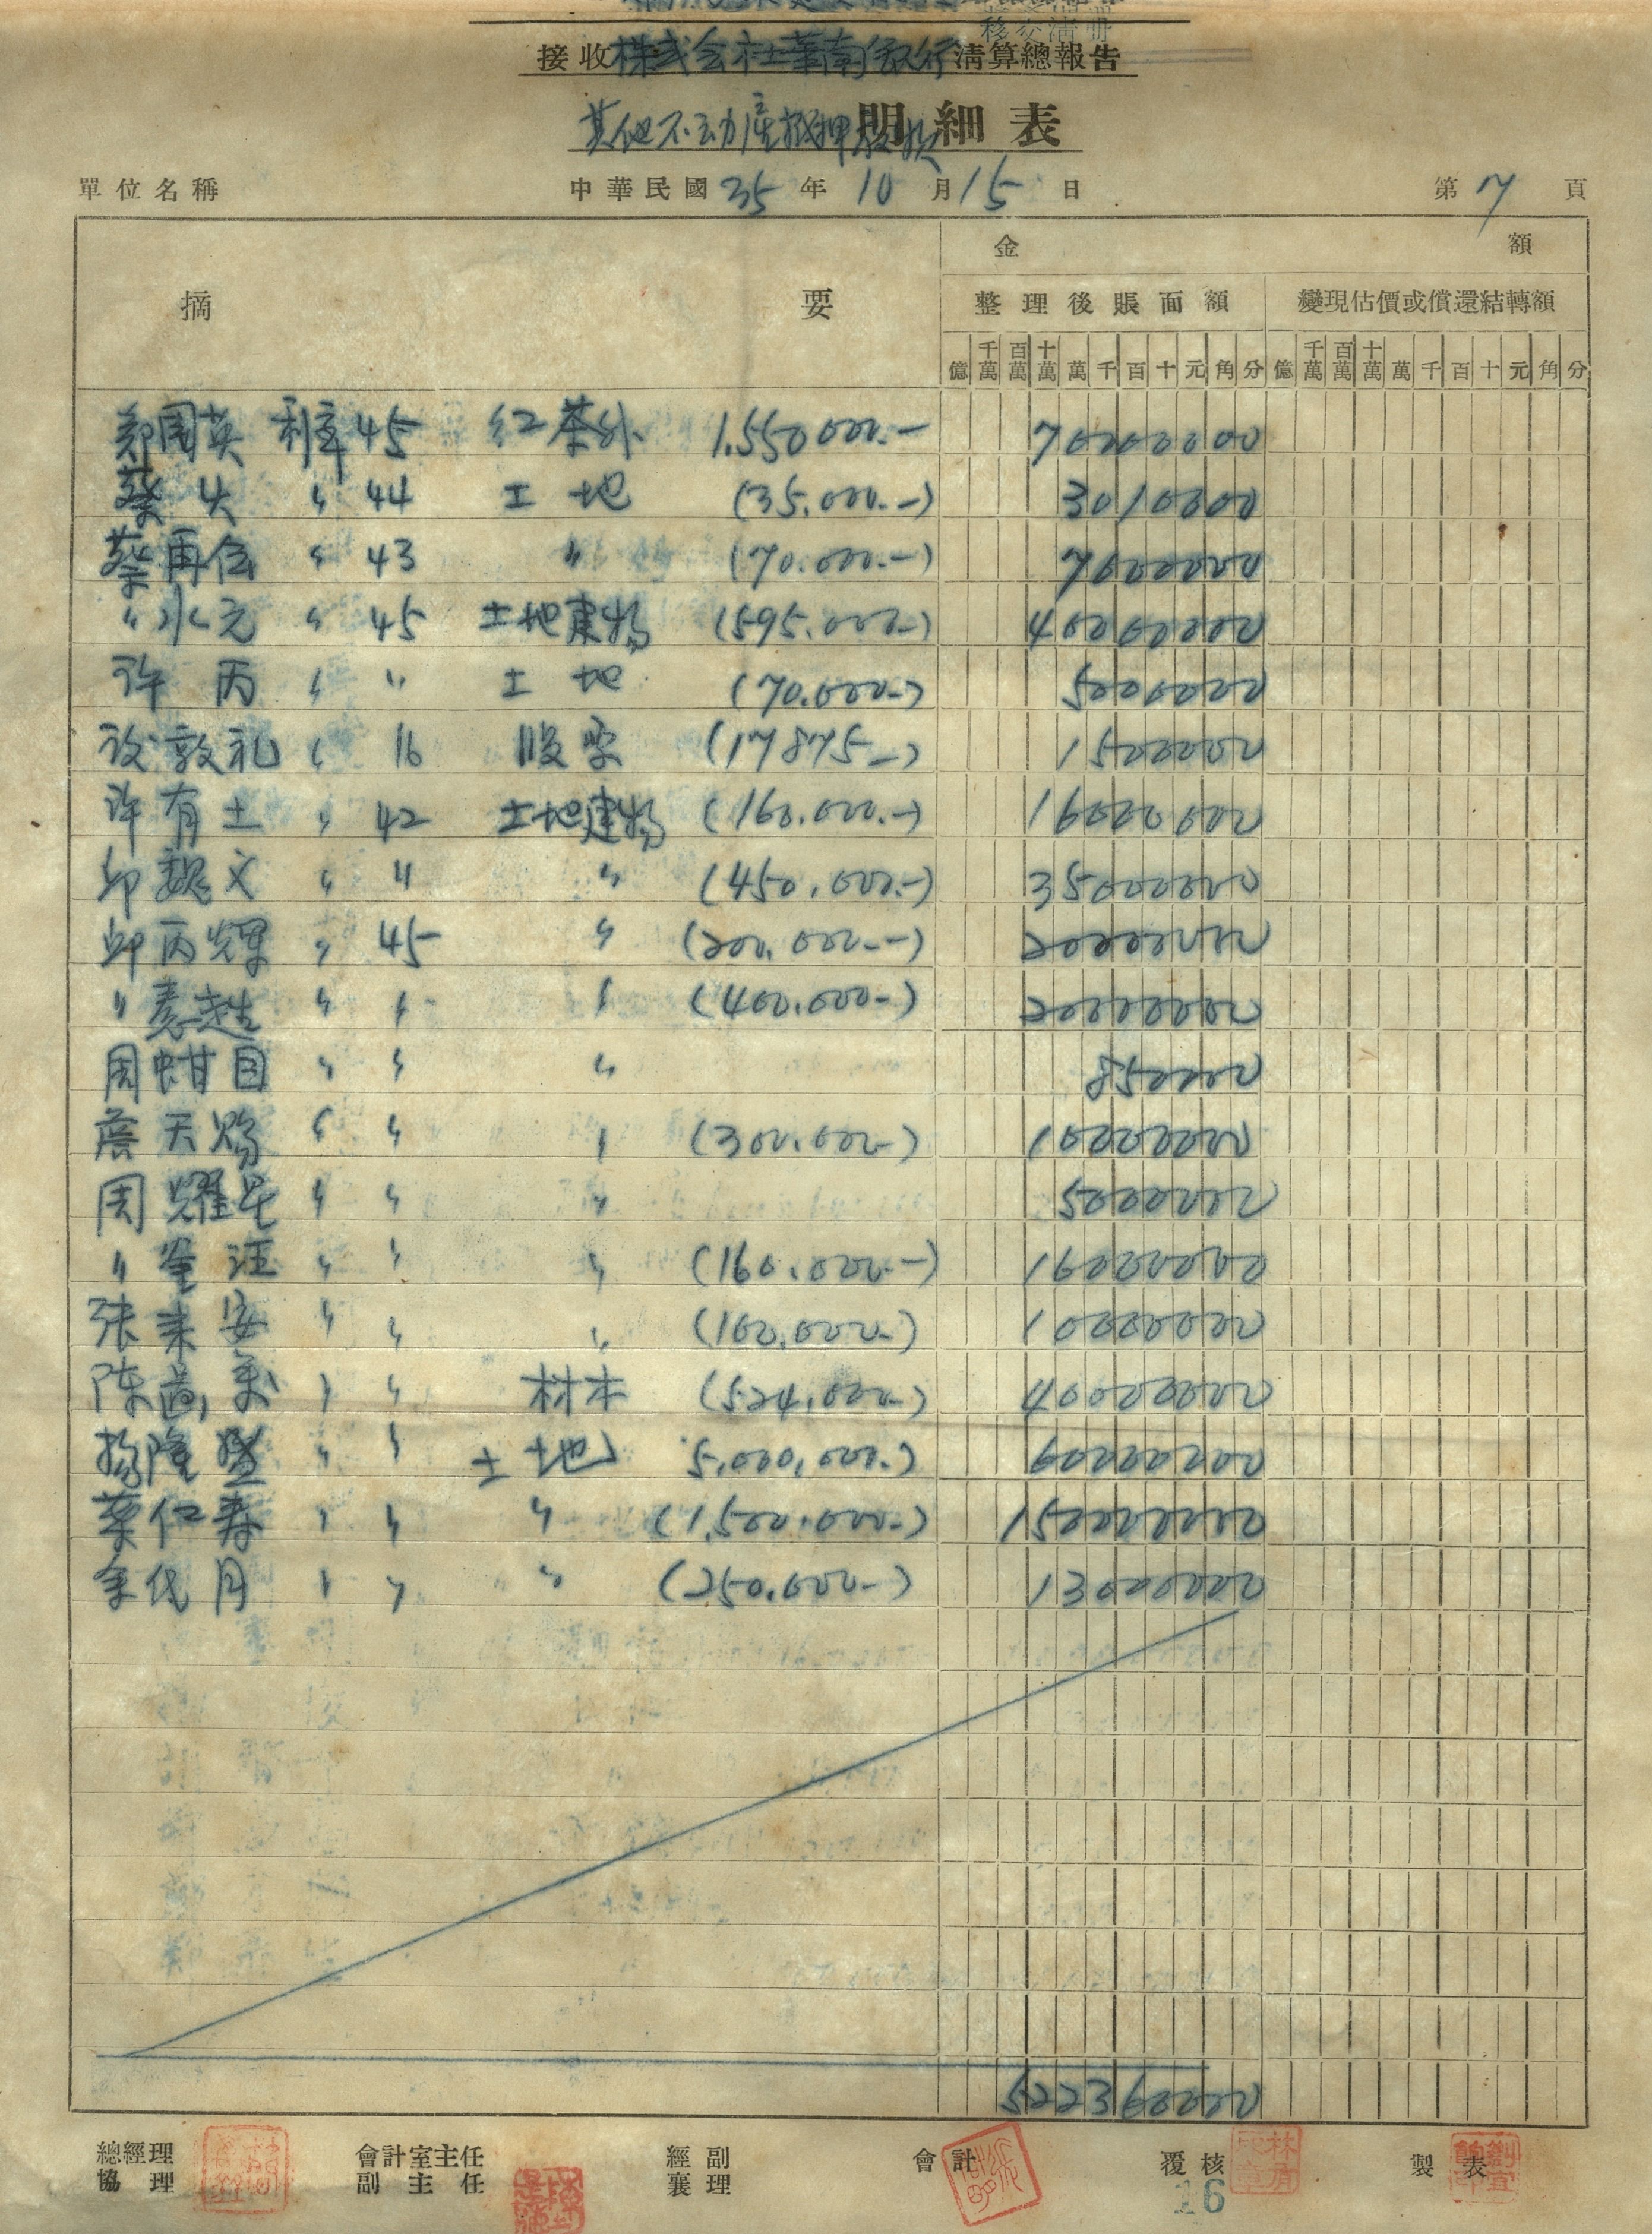 移交清册
接收株式会社華南銀行清算總報告
其他不动産抵押放款明細表
單位名稱 中華民國35年10月15日 第7頁
摘要 金額
整理後賬面額 變現估價或償還結轉額
億 千萬 百萬 十萬 萬 千 百 十 元 角 分 億 千萬 百萬 十萬 萬 千 百 十 元 角 分
郑国英 利率 45 红茶外 1.550000.— 70000000
蔡 〃 44 土地 (35.000.—) 3010000
蔡再 〃 43 〃 (70.000.—) 7000000
〃水元 〃 45 土地建物 (595.000—) 40000000
许丙 〃 〃 土地 (70.000—) 5000000
敦礼 〃 16 股票 (17875—) 1500000
许有土 〃 42 土地建物 (160.000.—) 16000000
邱魏文 〃 〃 〃 (450.000.—) 35000000
邱丙輝 〃 45 〃 (200.000.—) 20000000
〃 〃 〃 〃 (400.000—) 20000000
周蚶目 〃 〃 〃 850000
詹天賜 〃 〃 〃 (300.000—) 10000000
周耀星 〃 〃 〃 5000000
〃 〃 〃 〃 (160.000.—) 16000000
张来安 〃 〃 〃 (100.000—) 10000000
陈 〃 〃 材木 (524,000—) 40000000
杨隆盛 〃 〃 土地 5,000,000.) 60000000
葉仁寿 〃 〃 〃 (1,500.000—) 150000000
余代月 〃 〃 〃 (250.000—) 13000000
522360000
總經理 會計室主任 經副 會計 覆核 製表
協理 副主任 襄理
16